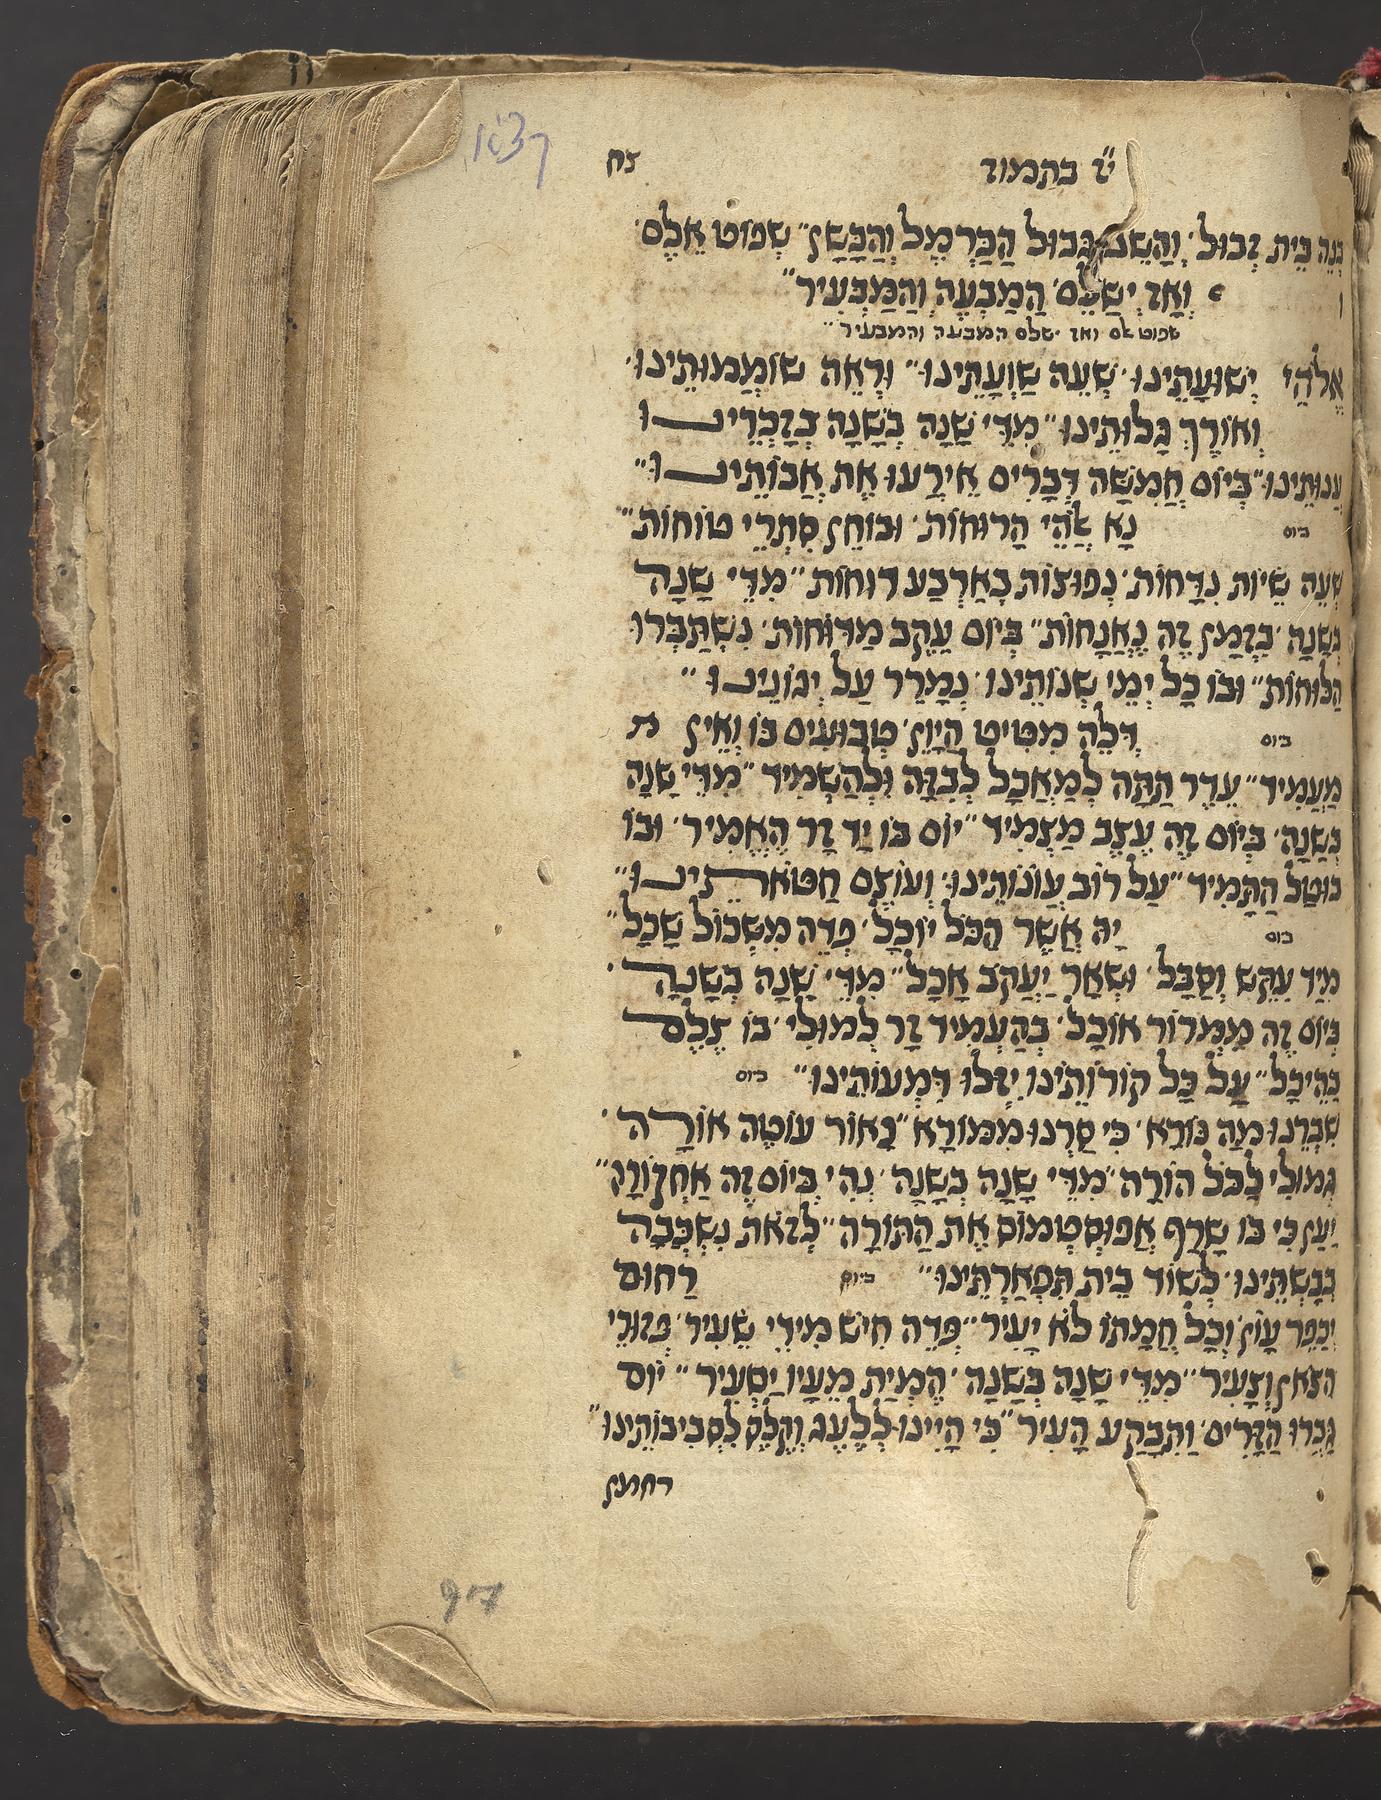 1037
י״ז בתמוז צח
בְּנֵה בֵּית זְבוּל׳ וְהָשֵׁב גְּבוּל הַכַּרְמֶל וְהַבָּשָׁן״ שְׁפוֹט אֵלֶם׳
וְאָז יְשַׁלֵּם׳ הַמַּבְעֶה וְהַמַּבְעִיר״
שפוט אלם ואז ישלם המבעה והמבעיר״
אֱלֹהֵי יְשׁוּעָתֵינוּ׳ שְׁעֵה שַׁוְעָתֵינוּ״ וּרְאֵה שׁוֹמֲמוּתֵינוּ׳
וְאוֹרֶךְ גָּלוּתֵינוּ״ מִדֵּי שָׁנָה בְּשָׁנָה בְּזָכְרֵינוּ
עֱנוּתֵינוּ״ בְּיוֹם חֲמִשָּׁה דְּבָרִים אֵירְעוּ אֶת אֲבוֹתֵינוּ״
ביום נָא אֱלֹהֵי הָרוּחוֹת׳ וּבוֹחֵן סִתְרֵי טוֹחוֹת״
שְׁעֵה שֵׂיוֹת נִדָּחוֹת׳ נְפוּצוֹת בְּאַרְבַּע רוּחוֹת״ מִדֵּי שָׁנָה
בְּשָׁנָה׳ בִּזְמַן זֶה נֶאֱנָחוֹת״ בְּיוֹם עֵקֶב מַדּוּחוֹת׳ נִשְׁתַּבְּרוּ
הַלּוּחוֹת״ וּבוֹ כָּל יְמֵי שְׁנוֹתֵינוּ׳ נְמָרֵר עַל יְגוֹנֵינוּ״
ביום דְּלֵה מִטִּיט הַיָּוֵן׳ טְבוּעִים בּוֹ וְאֵין מ
מַעֲמִיד״ עֵדֶר תַּתָּה לְמַאֲכָל לְבִזָּה וּלְהַשְׁמִיד״ מִדֵּי שָׁנָה
בְּשָׁנָה׳ בְּיוֹם זֶה עֶצֶב מַצְמִיד״ יוֹם בּוֹ יַד זָר הֶאֱמִיר׳ וּבוֹ
בוּטַל הַתָּמִיד״ עַל רוֹב עֲוֹנוֹתֵינוּ׳ וְעוֹצֶם חַטֹּאתֵינוּ״
ביום יָהּ אֲשֶׁר הַכֹּל יוּכָל׳ פְּדֵה מִשְּׁכוֹל שָׁכָל״
מִיַּד עִקֵּשׁ וְסָכָל׳ וּשְׁאָר יַעֲקֹב אָכָל״ מִדֵּי שָׁנָה בְּשָׁנָה׳
בְּיוֹם זֶה מִמְּרוֹר אוֹכָל׳ בְּהַעֲמִיד זָר לְמוּלִי׳ בּוֹ צֶלֶם
בַּהֵיכָל״ עַל כָּל קוֹרוֹתֵינוּ יִזְּלוּ דִּמְעוֹתֵינוּ״ ביום
שִׁבְרֵנוּ מַה נּוֹרָא׳ כִּי סַרְנוּ מִמּוֹרָא״ נָאוֹר עוֹטֶה אוֹרָה׳
גְּמוּלִי לַכֹּל הוֹרָה׳ מִדֵּי שָׁנָה בְּשָׁנָה׳ נְהִי בְּיוֹם זֶה אַחְקוֹרָה״
יַעַן כִּי בּוֹ שָׂרַף אֲפוּסְטְמוֹס אֶת הַתּוֹרָה״ לְזֹאת נִשְׁכְּבָה
בְּבָשְׁתֵּינוּ׳ לְשׁוֹד בֵּית תִּפְאַרְתֵּינוּ״ ביום רַחוּם
יְכַפֵּר עָוֹן וְכָל חֲמָתוֹ לֹא יָעִיר״ פְּדֵה חִישׁ מִידֵי שֵׂעִיר׳ פְּזוּרֵי
הצאן וְצָעִיר״ מִדֵּי שָׁנָה בְּשָׁנָה׳ הֶמְיַת מֵעָיו יַסְעִיר״ יוֹם
גָּבְרוּ הַזָּרִים׳ וַתִּבָּקַע הָעִיר״ כִּי הָיִינוּ לְלַעַג וָקֶלֶס לִסְבִיבוֹתֵינוּ״
רחמן
97